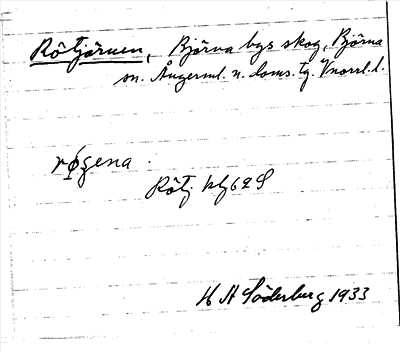 Rötjärnen, Björna bys skog, Björna
sn. Ångerml. n. doms. tg. Vnorrl. l.
Rötj kbl 62 S
H A Söderberg 1933